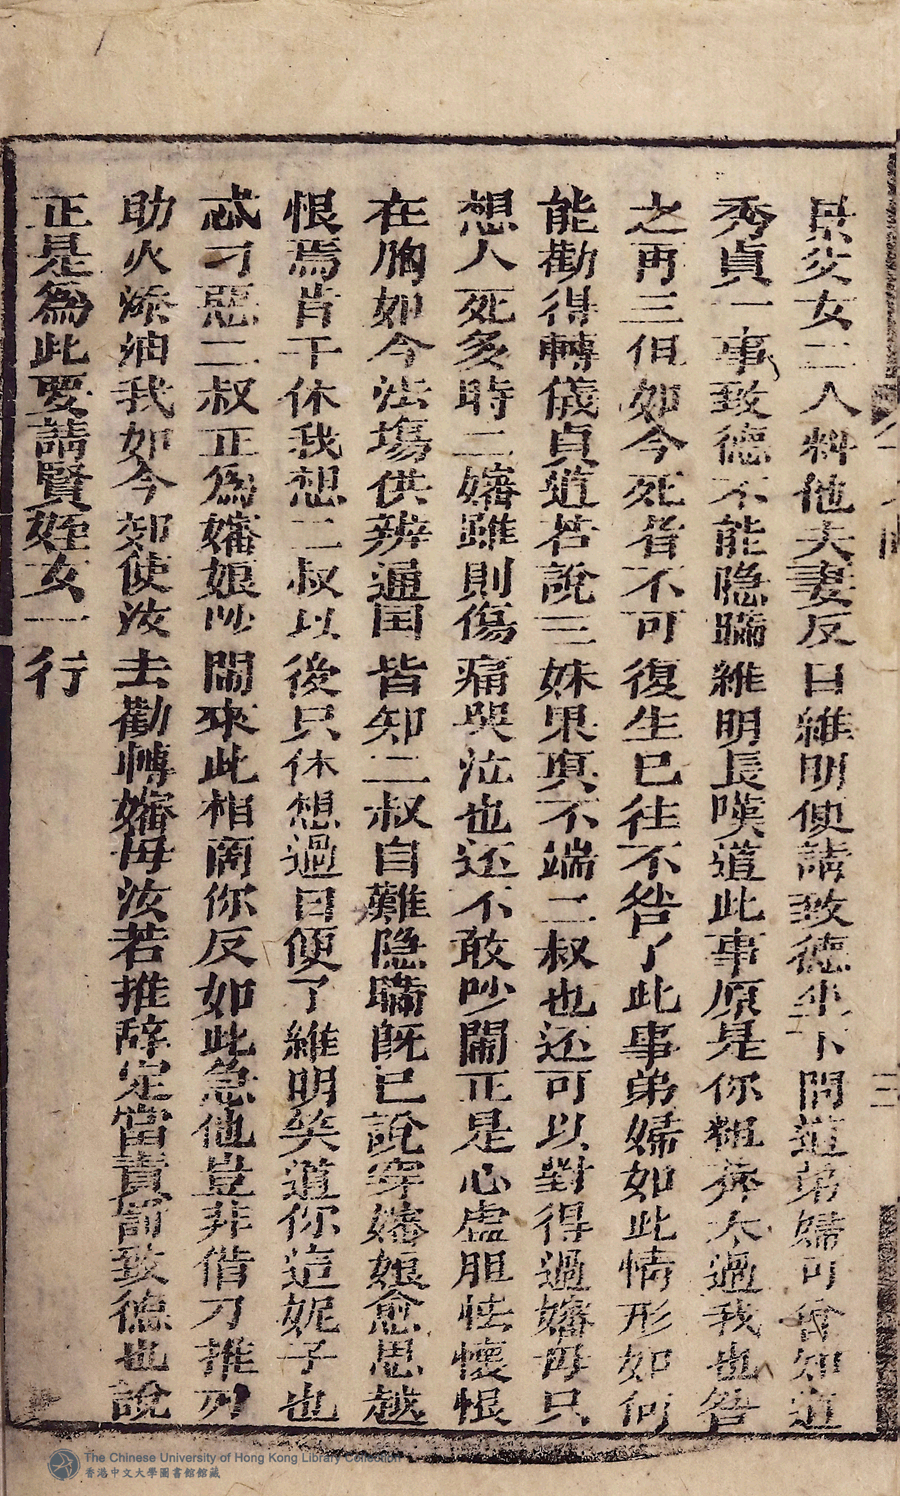 景父女二人料他夫妻反目維明便請致德坐下問道弟婦可曾知道
秀貞一事致德不能隐瞞維明長嘆道此事原是你粗莽太過我也咎
之再三但如今死者不可復生已往不咎了此事弟婦如此情形如何
能勸得轉儀貞道若說三妹果真不端二叔也还可以對得過嬸母只
想人死多時二嬸雖則傷痛哭泣也还不敢吵鬧正是心虛胆怯懷恨
在胸如今法塲供辨通国皆知二叔自難隐瞞既已說穿嬸娘愈思越
恨焉肯干休我想二叔以後只休想過日便了維明笑道你這妮子也
忒刁惡二叔正為嬸娘吵鬧來此相商你反如此急他豈非借刀推刃
助火添油我如今郊使汝去勸轉嬸母汝若推辞定當責罰致德也說
正是為此要請賢姪女一行
The Chinese University of Hong Kong Library Collection
香港中文大學圖書館館藏